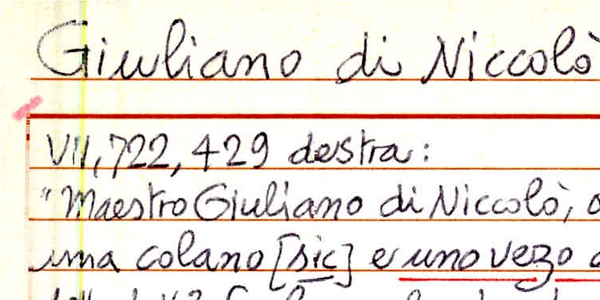 Giuliano di Niccolò
VII, 722, 429 destra:
"Maestro Giuliano di Niccolò,
una colano [sic] e uno vezo